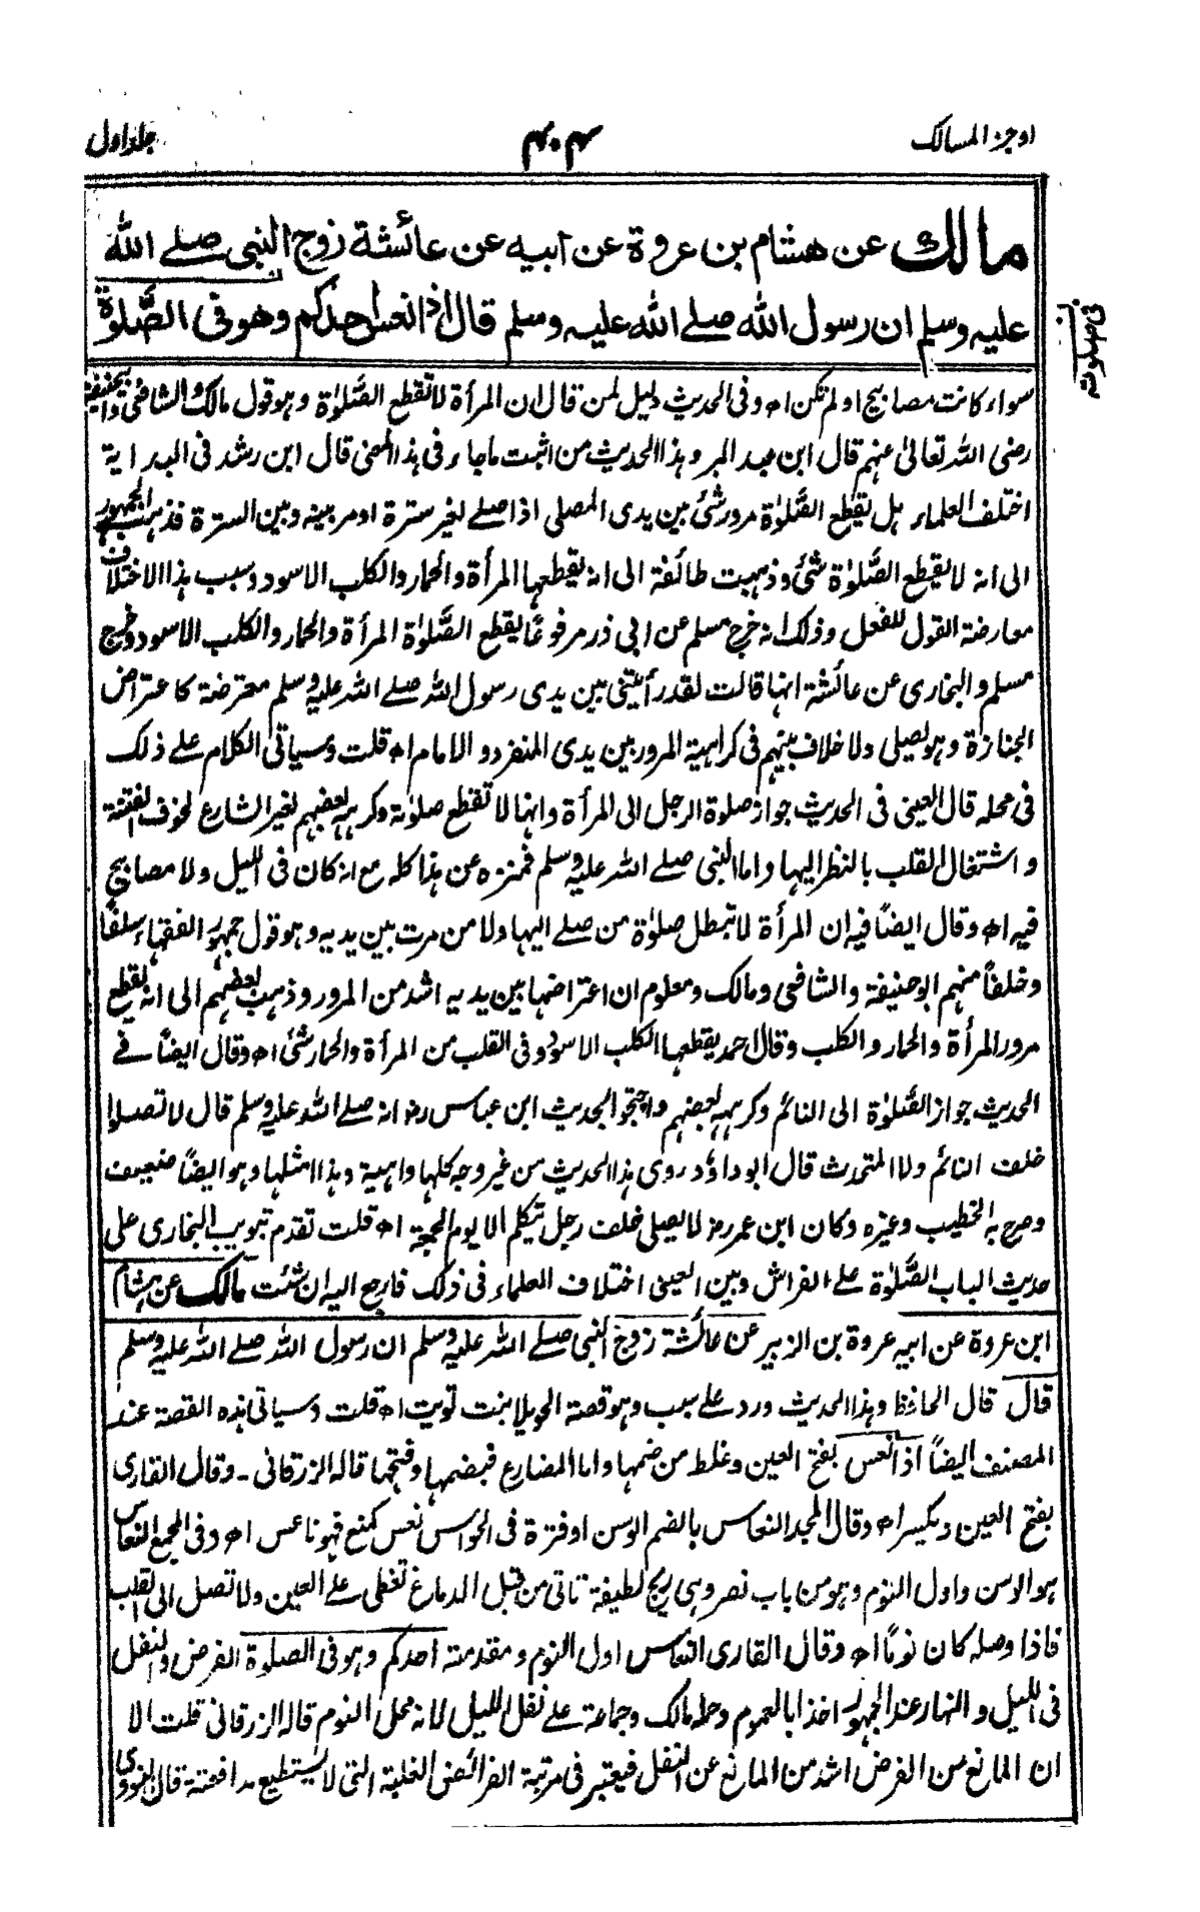 اوجز المسالك
۴۰۴
جلد اول
مالك عن هشام بن عروة عن ابيه عن عائشة زوج النبى صلے الله
عليه وسلم ان رسول الله صلے الله عليه وسلم قال اذا نعس احدكم وهو فى الصَّلوٰة
فى صلوته
سواء كانت مصابيح او لم تكن اھ وفى الحديث دليل لمن قال ان المرأة لا تقطع الصَّلوٰة وهو قول مالك والشافعى وابيحنيفة
رضى الله تعالىٰ عنهم قال ابن عبد البر وهذا الحديث من اثبت ما جاء فى هذا المعنى قال ابن رشد فى البداية
اختلف العلماء هل يقطع الصَّلوٰة مرور شئ بين يدى المصلى اذا صلے لغير سترة او مر بينه وبين السترة فذهب الجمهور
الى انه لا يقطع الصَّلوٰة شئ وذهبت طائفة الى انه يقطعها المرأة والحمار والكلب الاسود وسبب هذا الاختلاف
معارضة القول للفعل وذلك انه خرج مسلم عن ابى ذر مرفوعًا يقطع الصَّلوٰة المرأة والحمار والكلب الاسود وخرج
مسلم والبخارى عن عائشة انها قالت لقد رأيتنى بين يدى رسول الله صلے الله عليه وسلم معترضة كاعتراض
الجنازة وهو يصلى ولا خلاف بينهم فى كراهية المرور بين يدى المنفرد والامام اھ قلت وسياتى الكلام علے ذلك
فى محله قال العينى فى الحديث جواز صلوة الرجل الى المرأة وانها لا تقطع صلوته وكرهه بعضهم لغير الشارع لخوف الفتنة
واشتغال القلب بالنظر اليها واما النبى صلے الله عليه وسلم فمنزه عن هذا كله مع انه كان فى الليل ولا مصابيح
فيه اھ وقال ايضًا فيه ان المرأة لا تبطل صلوٰة من صلے اليها ولا من مرت بين يديه وهو قول جمهور الفقهاء سلفًا
وخلفًا منهم ابو حنيفة والشافعى ومالك ومعلوم ان اعتراضها بين يديه اشد من المرور وذهب بعضهم الى انه يقطع
مرور المرأة والحمار والكلب وقال احمد يقطعها الكلب الاسود وفى القلب من المرأة والحمار شئ اھ وقال ايضًا فے
الحديث جواز الصَّلوٰة الى النائم وكرهه بعضهم واحتجوا بحديث ابن عباس رض انه صلے الله عليه وسلم قال لا تصلوا
خلف النائم ولا المتحدث قال ابو داؤد روى هذا الحديث من غير وجه كلها واهية وهذا امثلها وهو ايضًا ضعيف
وصرح به الخطيب وغيره وكان ابن عمر رض لا يصلى خلف رجل يتكلم الا يوم الجمعة اھ قلت تقدم تبويب البخارى على
حديث الباب الصَّلوٰة علے الفراش وبين العينى اختلاف العلماء فى ذلك فارجع اليه ان شئت مالك عن هشام
ابن عروة عن ابيه عروة بن الزبير عن عائشة زوج النبى صلے الله عليه وسلم ان رسول الله صلے الله عليه وسلم
قال قال الحافظ وهذا الحديث ورد علے سبب وهو قصة الحولا بنت تويت اھ قلت وسياتى هذه القصة عند
المصنف ايضًا اذا نعس بفتح العين وغلط من ضمها واما المضارع فبضمها وفتحها قاله الزرقانى - وقال القارى
بفتح العين ويكسر اھ وقال المجد النعاس بالضم الوسن او فترة فى الحواس نعس كمنع فهو ناعس اھ وفى المجمع النعاس
هو الوسن واول النوم وهو من باب نصر وهى ريح لطيفة تاتى من قبل الدماغ تغطى علے العين ولا تصل الى القلب
فاذا وصله كان نومًا اھ وقال القارى النعاس اول النوم ومقدمته احدكم وهو فى الصلوٰة الفرض والنفل
فى الليل والنهار عند الجمهور اخذا بالعموم وحمله مالك وجماعة علے نفل الليل لانه محل النوم قاله الزرقانى قلت الا
ان المانع من الفرض اشد من المانع عن النفل فيعتبر فى مرتبة الفرائض الغلبة التى لا يستطيع مدافعته قال النووى